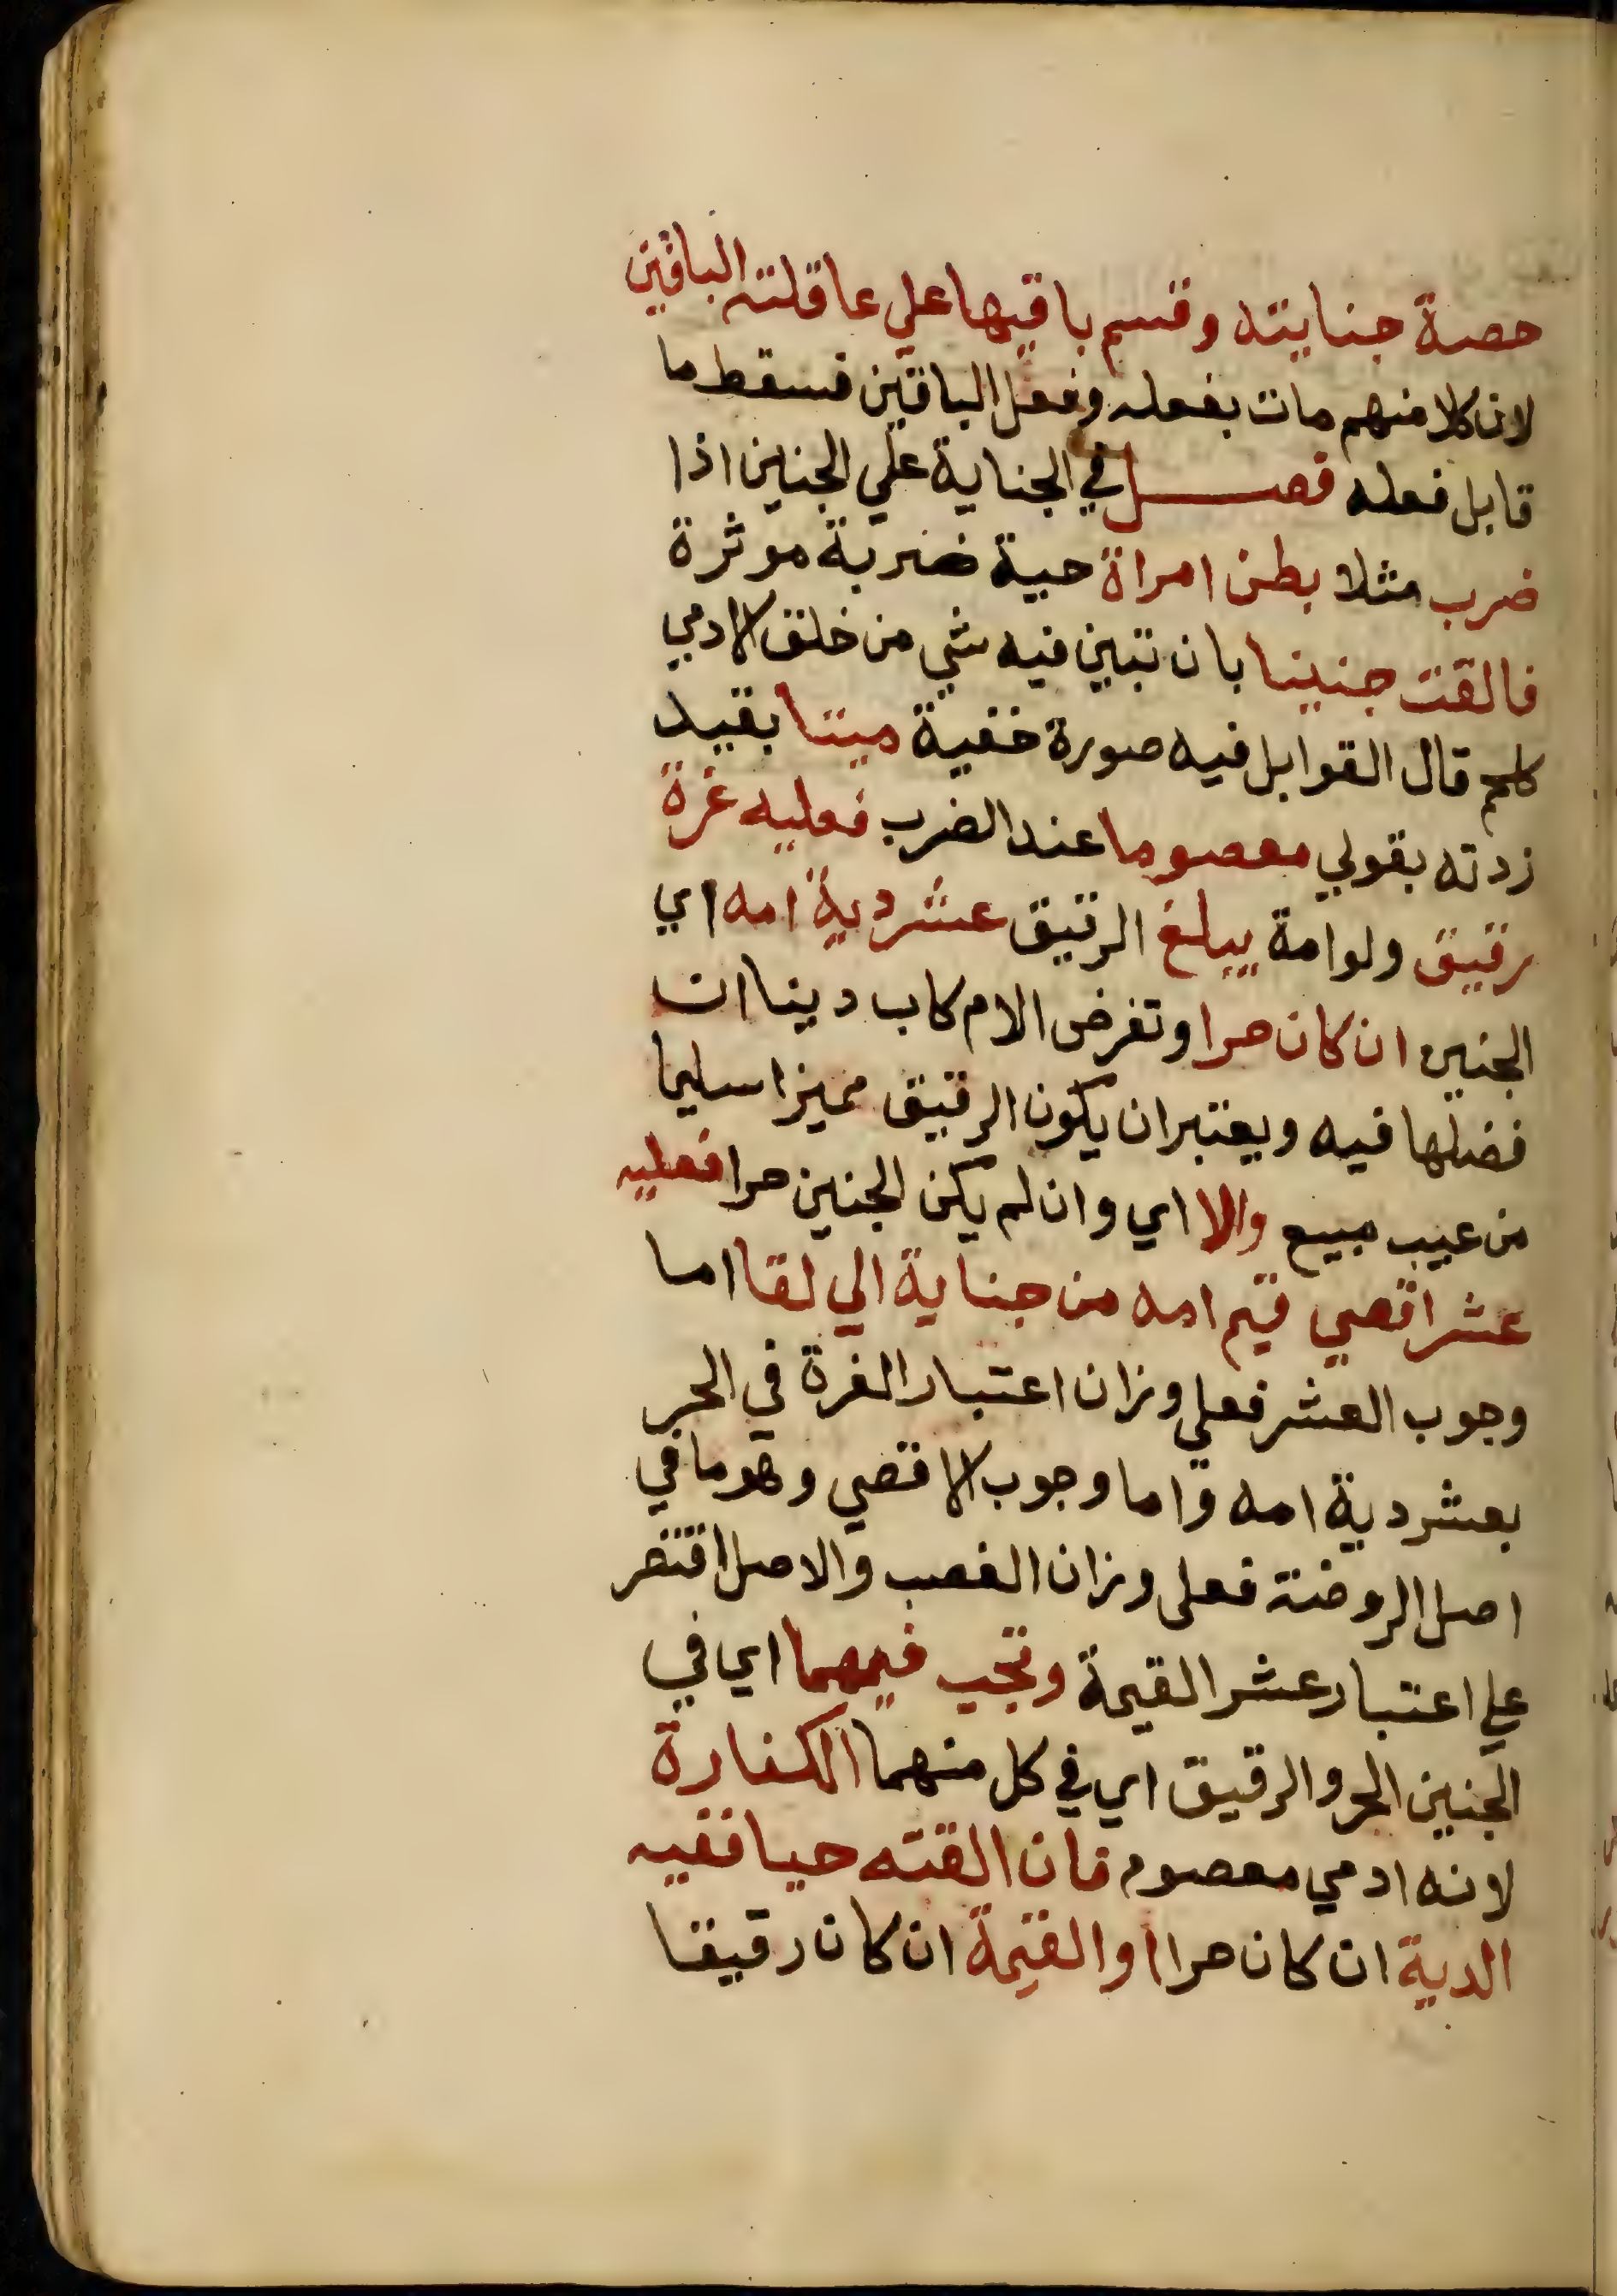 حصة جنايته وقسم باقيها علي عاقلته الباقين
لان كلا منهم مات بفعله وفعل الباقين فسقط ما
قابل فعله فصل في الجناية علي الجنين اذا
ضرب مثلا بطن امراة حية ضربة موثرة
فالقت جنينا بان تبين فيه شي من خلق الادمي
كلحم قال القوابل فيه صورة خفية ميتا بقيد
زدته بقولي معصوما عند الضرب فعليه غرة
رقيق ولو امة يبلغ الرقيق عشر دية امه اي
الجنين ان كان حرا وتفرض الام كاب دينا ان
فضلها فيه ويعتبر ان يكون الرقيق مميزا سليما
من عيب مبيع والا اي وان لم يكن الجنين حرا فعليه
عشر اقصي قيم امه من جناية الي لقا اما
وجوب العشر فعلي وزان اعتبار الغرة في الحر
بعشر دية امه واما وجوب الاقصي وهو ما في
اصل الروضة فعلي وزان الغصب والاصل اقتصر
علي اعتبار عشر القيمة وتجب فيهما اي في
الجنين الحر والرقيق اي في كل منهما الكفارة
لانه ادمي معصوم فان القته حيا ففيه
الدية ان كان حرا او القيمة ان كان رقيقا